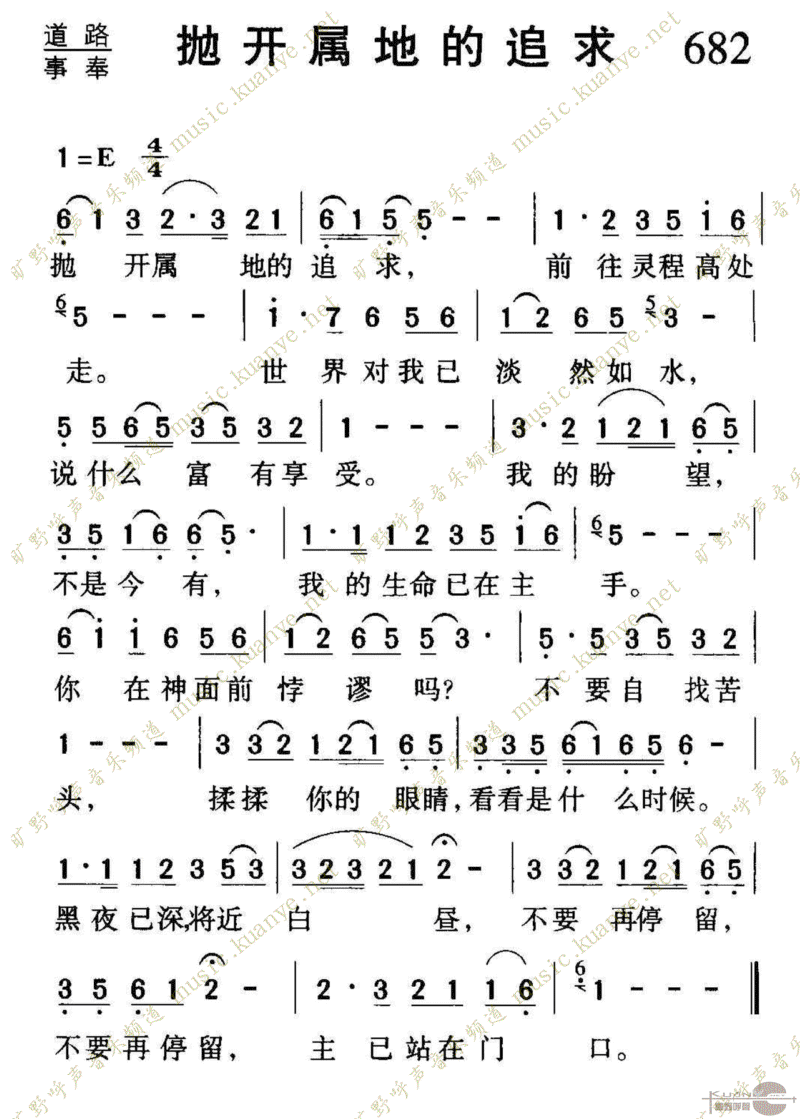 道路
事奉
抛开属地的追求 682
1=E 4/4
6 1 3 2·3 2 1 | 6 1 5 5 - - | 1·2 3 5 i 6 |
抛 开属 地的 追 求, 前 往灵程高处
6 5 - - - | i·7 6 5 6 | 1 2 6 5 5 3 - |
走。 世 界对我已 淡 然如 水,
5 5 6 5 3 5 3 2 | 1 - - - | 3·2 1 2 1 6 5 |
说什么 富 有享 受。 我 的盼 望,
3 5 1 6 6 5· | 1·1 1 2 3 5 i 6 | 6 5 - - - |
不是今 有, 我 的生命已在主 手。
6 i i 6 5 6 | 1 2 6 5 5 3· | 5·5 3 5 3 2 |
你 在神面前悖 谬 吗? 不 要自 找苦
1 - - - | 3 3 2 1 2 1 6 5 | 3 3 5 6 1 6 5 6 - |
头, 揉揉 你的 眼睛,看看是什 么时候。
1·1 1 2 3 5 3 | 3 2 3 2 1 2 - | 3 3 2 1 2 1 6 5 |
黑夜已深,将近 白 昼, 不要 再停 留,
3 5 6 1 2 - | 2·3 2 1 1 6 | 6 1 - - ‖
不要再停留, 主 已站在门 口。
旷野呼声音乐频道 music.kuanye.net